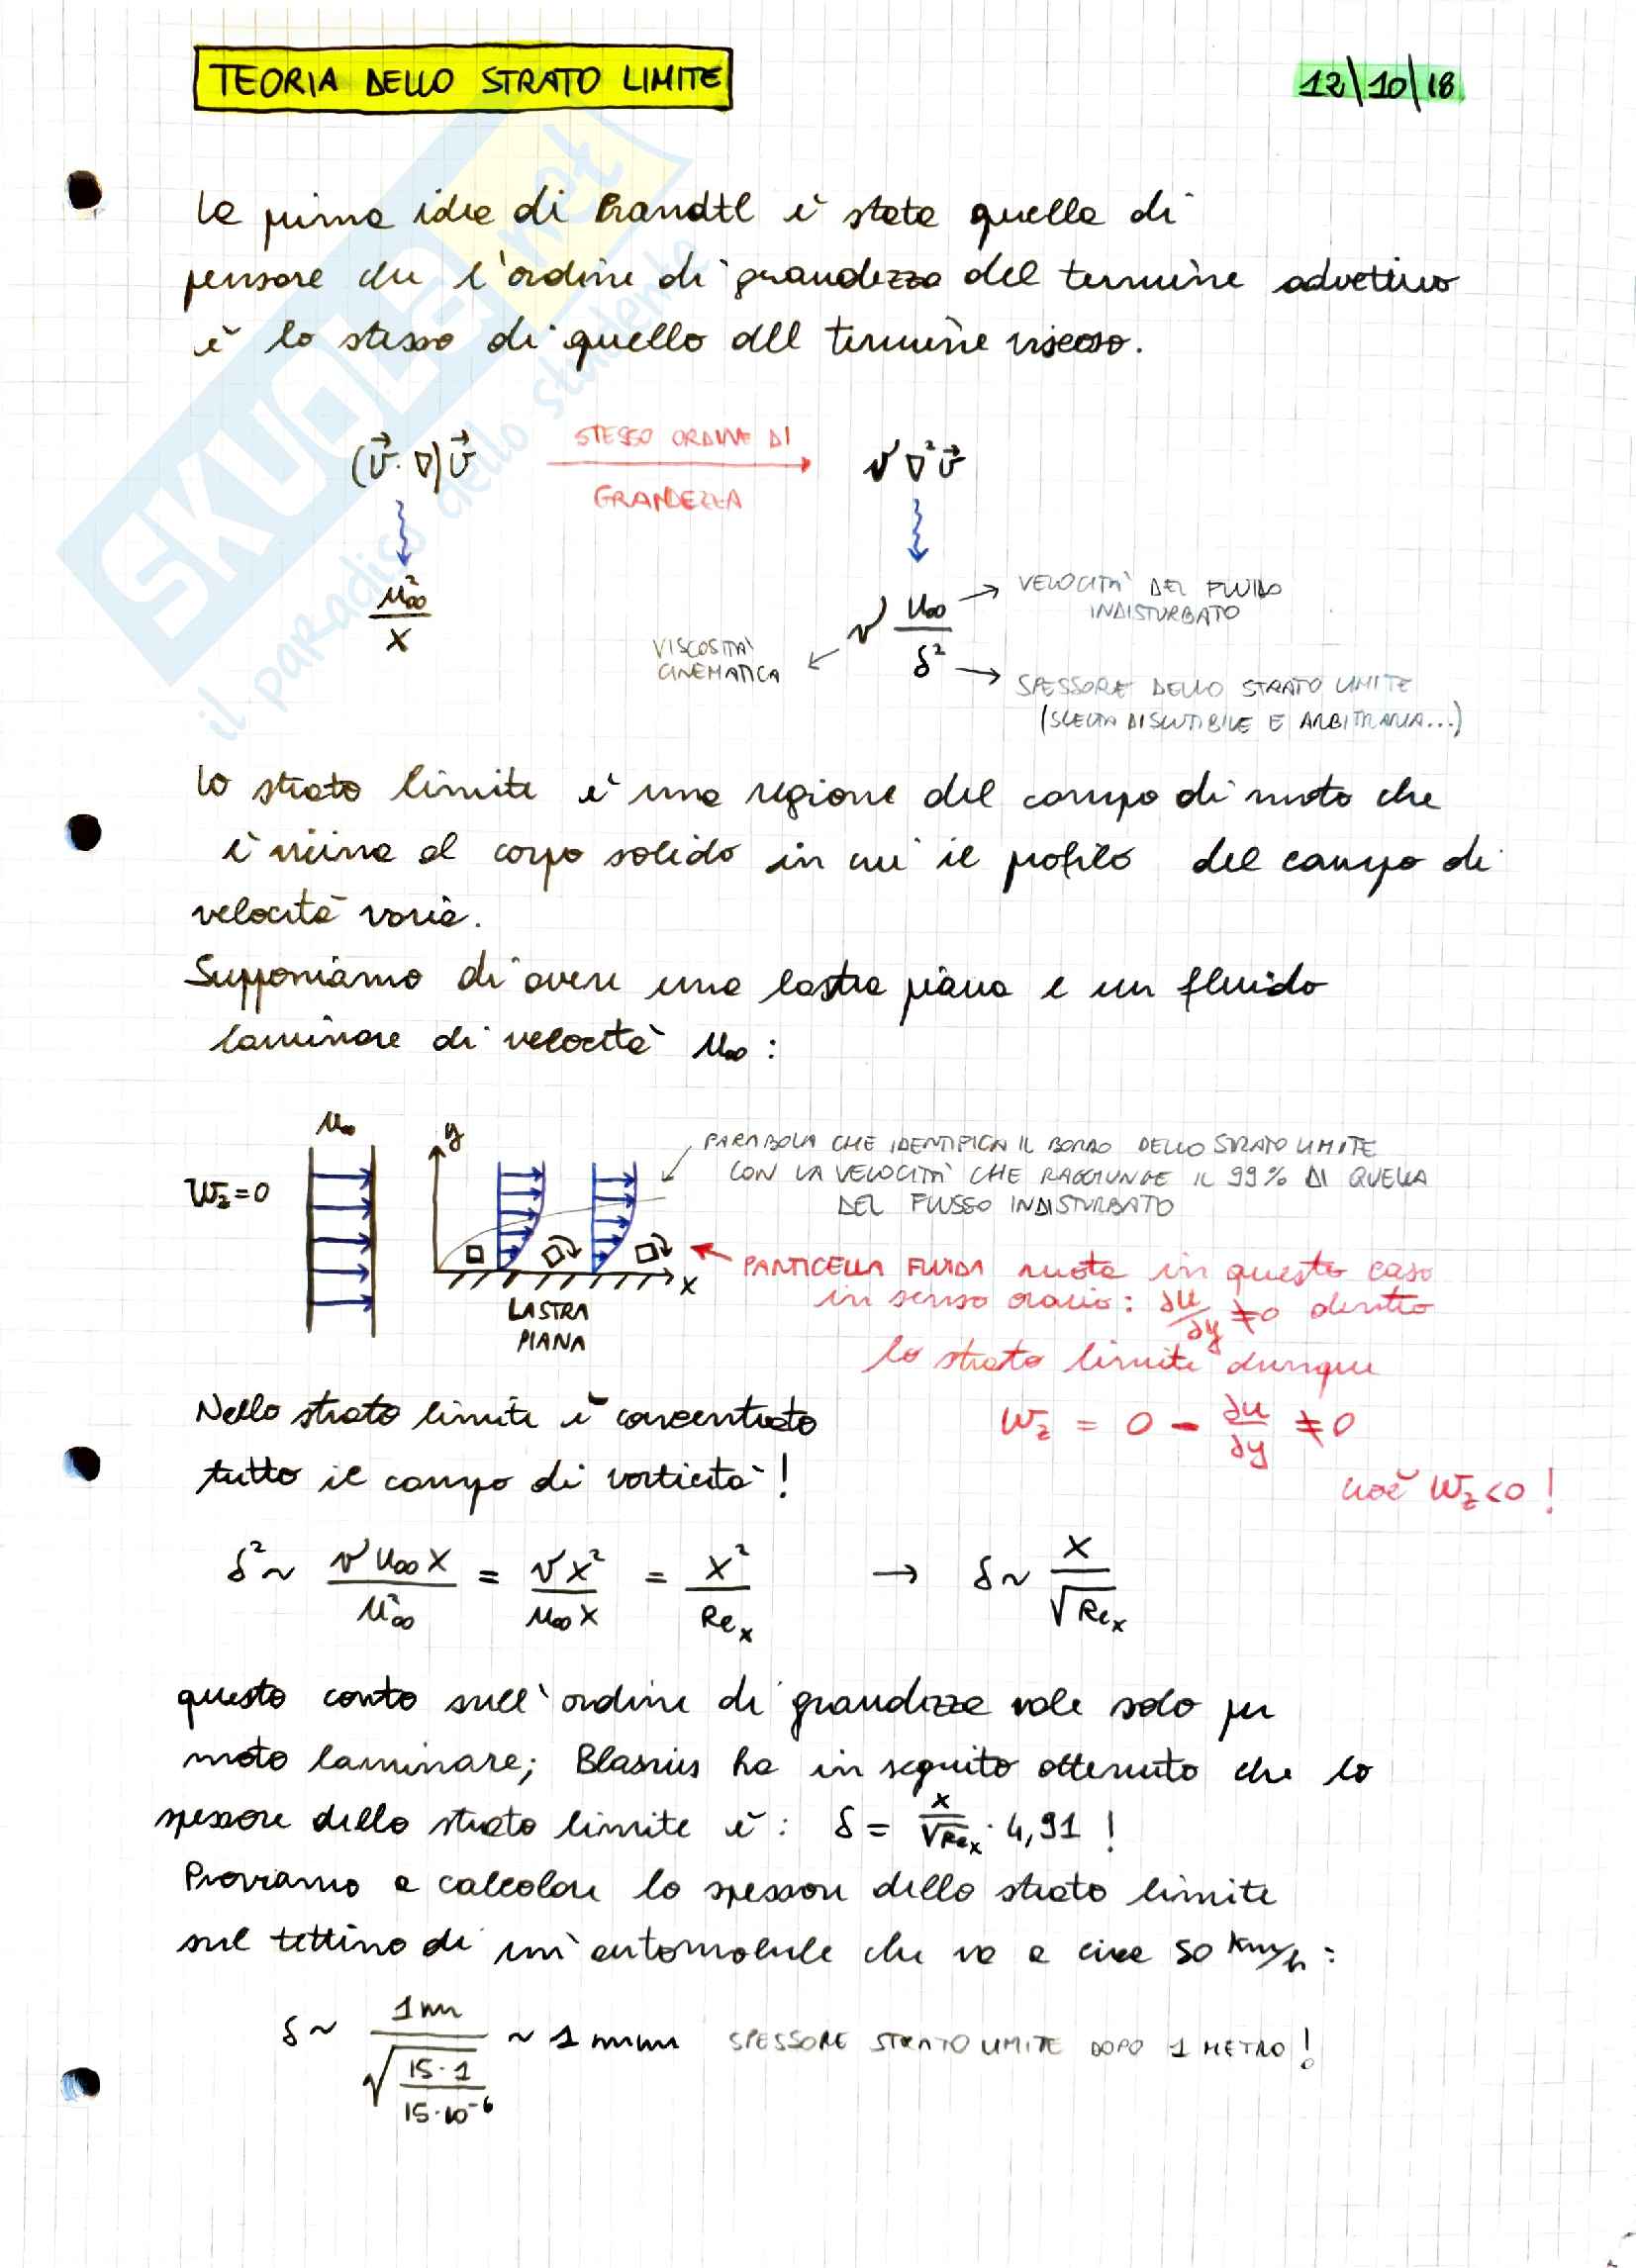 TEORIA DELLO STRATO LIMITE
12|10|18
La prima idea di Prandtl è stata quella di
pensare che l'ordine di grandezza del termine advettivo
è lo stesso di quello del termine viscoso.
(v⃗·∇)v⃗ STESSO ORDINE DI GRANDEZZA → ν∇²v⃗
u∞²/x
ν u∞/δ²
→ VELOCITÀ DEL FLUIDO
INDISTURBATO
VISCOSITÀ
CINEMATICA
→ SPESSORE DELLO STRATO LIMITE
(SCELTA DISCUTIBILE E ARBITRARIA...)
Lo strato limite è una regione del campo di moto che
è vicina al corpo solido in cui il profilo del campo di
velocità varia.
Supponiamo di avere una lastra piana e un fluido
laminare di velocità u∞:
u∞
y
PARABOLA CHE IDENTIFICA IL BORDO DELLO STRATO LIMITE
CON LA VELOCITÀ CHE RAGGIUNGE IL 99% DI QUELLA
DEL FLUSSO INDISTURBATO
Wz=0
x
LASTRA
PIANA
PARTICELLA FLUIDA ruota in questo caso
in senso orario: ∂u/∂y ≠0 dentro
lo strato limite dunque
Wz = 0 - ∂u/∂y ≠0
cioè Wz<0!
Nello strato limite è concentrato
tutto il campo di vorticità!
δ² ~ νu∞x/u∞² = νx²/u∞x = x²/Rex → δ ~ x/√Rex
questo conto sull'ordine di grandezza vale solo per
moto laminare; Blasius ha in seguito ottenuto che lo
spessore dello strato limite è: δ = x/√Rex · 4,91 !
Proviamo a calcolare lo spessore dello strato limite
sul tettino di un'automobile che va a circa 50 Km/h:
δ ~ 1m/√(15·1/15·10⁻⁶) ~ 1 mm SPESSORE STRATO LIMITE DOPO 1 METRO!
SKUOLA.net
il paradiso dello studente